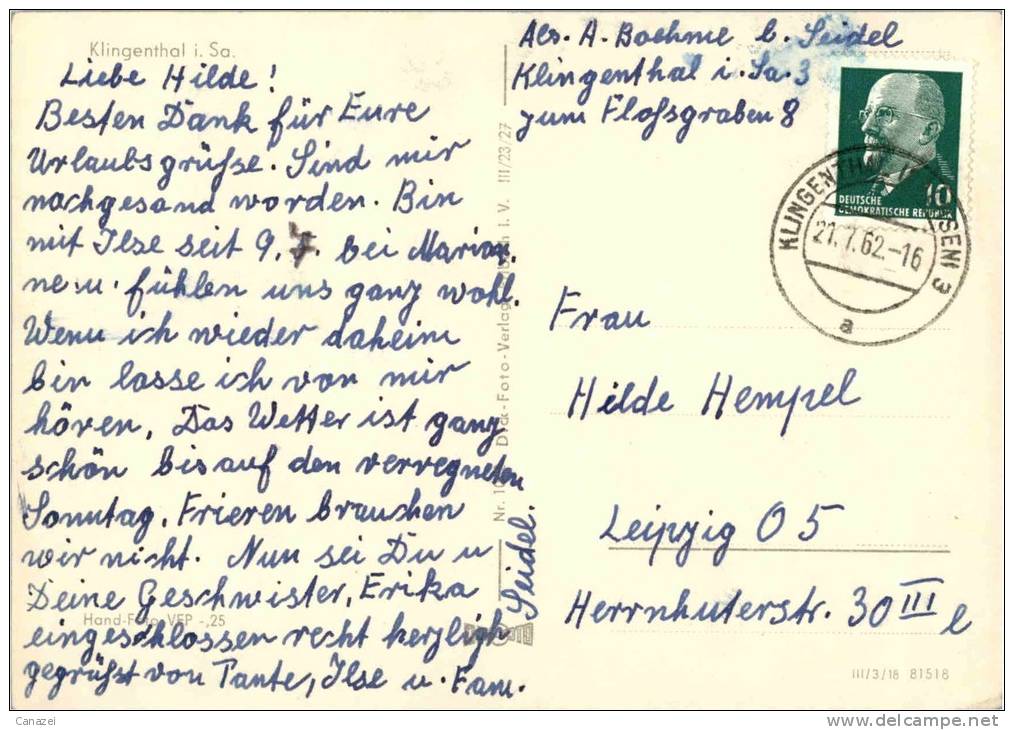 Klingenthal i. Sa.
Liebe Hilde!
Besten Dank für Eure
Urlaubsgrüsse. Sind mir
nachgesand worden. Bin
mit Ilse seit 9. 7. bei Marian,
ne u. fühlen uns ganz wohl.
Wenn ich wieder daheim
bin lasse ich von mir
hören. Das Wetter ist ganz
schön bis auf den verregneten
Sonntag. Frieren brauchen
wir nicht. Nun sei Du u
Deine Geschwister, Erika
eingeschlossen recht herzligh
gegrüsst von Tante, Ilse u. Fam.
Seidel.
Hand-Foto VEP -,25
Nr. 10
Dick-Foto-Verlag
I. V. III/23/27
Abs. A. Boehme b. Seidel
Klingenthal i. Sa. 3
zum Flossgraben 8
10
DEUTSCHE
DEMOKRATISCHE REPUBLIK
KLINGENTHAL
SEN) 3
21.7.62.-16
a
Frau
Hilde Hempel
Leipzig O 5
Herrnhuterstr. 30 III l
III/3/18 81518
Canazei
www.delcampe.net